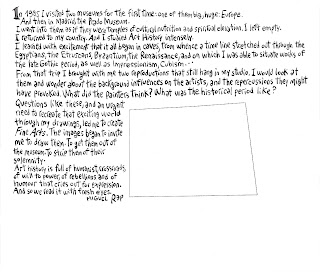 In 1995 I visited two museums for the first time: one of them big, huge: Europe.
And then in Madrid the Prado Museum.
I went into them as if they were temples of critical nutrition and spiritual elevation. I left empty.
I returned to my country. And I studied Art History intensely.
I learned with excitement that it all began in caves, from whence a time line stretched out through the
Egyptians, the Etruscans, Byzantium, the Renaissance, and on which I was able to situate works of
the late Gothic period, as well as Impressionism, Cubism...
From that trip I brought with me two reproductions that still hang in my studio. I would look at
them and wonder about the background influences on the artists, and the repercussions they might
have provoked. What did the painters think? What was the historical period like?
Questions like these, and an urgent
need to recreate that exciting world
through my drawings, led me to create
Fine Arts. The images began to invite
me to draw them. To get them out of
the museum. To strip them of their
solemnity.
Art history is full of humanist, crossroads
of will to power, of rebellions and of
humour that cries out for expression.
And so we read it with fresh eyes.
MIGUEL REP